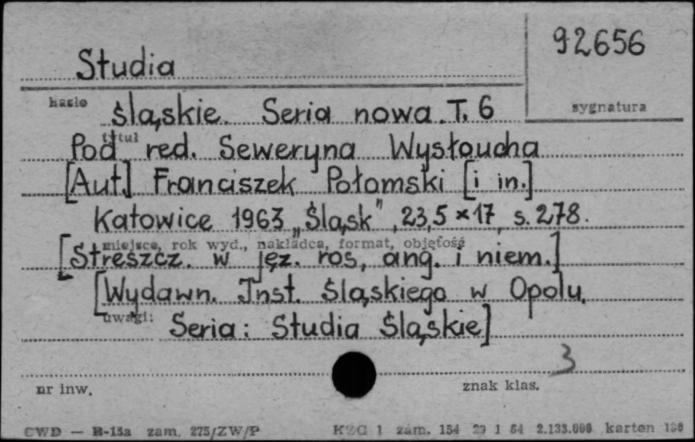 92656
Studia
hasło
sygnatura
śląskie. Seria nowa. T. 6
tytuł
Pod red. Seweryna Wysłoucha
[Aut.] Franciszek Połomski [i in.]
Katowice 1963 „Śląsk", 23,5 × 17, s. 278.
miejsce, rok wyd., nakładca, format, objętość
[Streszcz. w jęz. ros, ang. i niem.]
[Wydawn. Inst. Śląskiego w Opolu.
uwagi:
Seria: Studia Śląskie]
3
nr inw.
znak klas.
CWD — B-15a zam. 275/ZW/P
KZG 1 zam. 154 29 1 64 2.133.000 karton